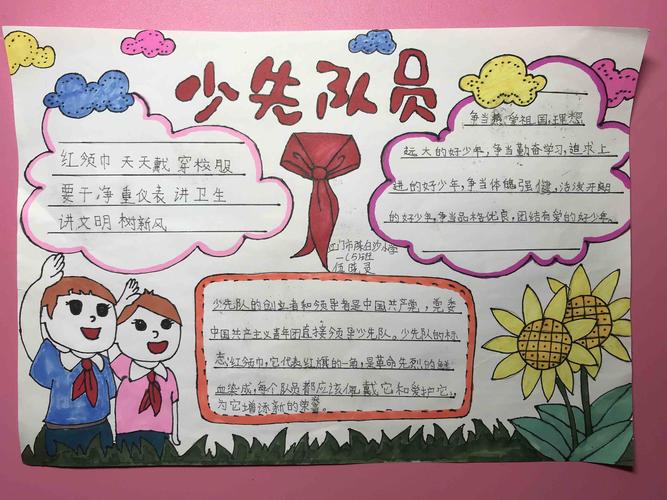 少先队员
红领巾 天天戴 穿校服
要干净 重仪表 讲卫生
讲文明 树新风
争当热爱祖国,理想
远大的好少年,争当勤奋学习,追求上
进的好少年,争当体魄强健,活泼开朗
的好少年,争当品格优良,团结有爱的好少年。
江门市陈白沙小学
一(5)班
伍
少先队的创立者和领导者是中国共产党,党委
中国共产主义青年团直接领导少先队。少先队的标
志:红领巾,它代表红旗的一角,是革命先烈的鲜
血染成,每个队员都应该佩戴它和爱护它,
为它增添新的荣誉